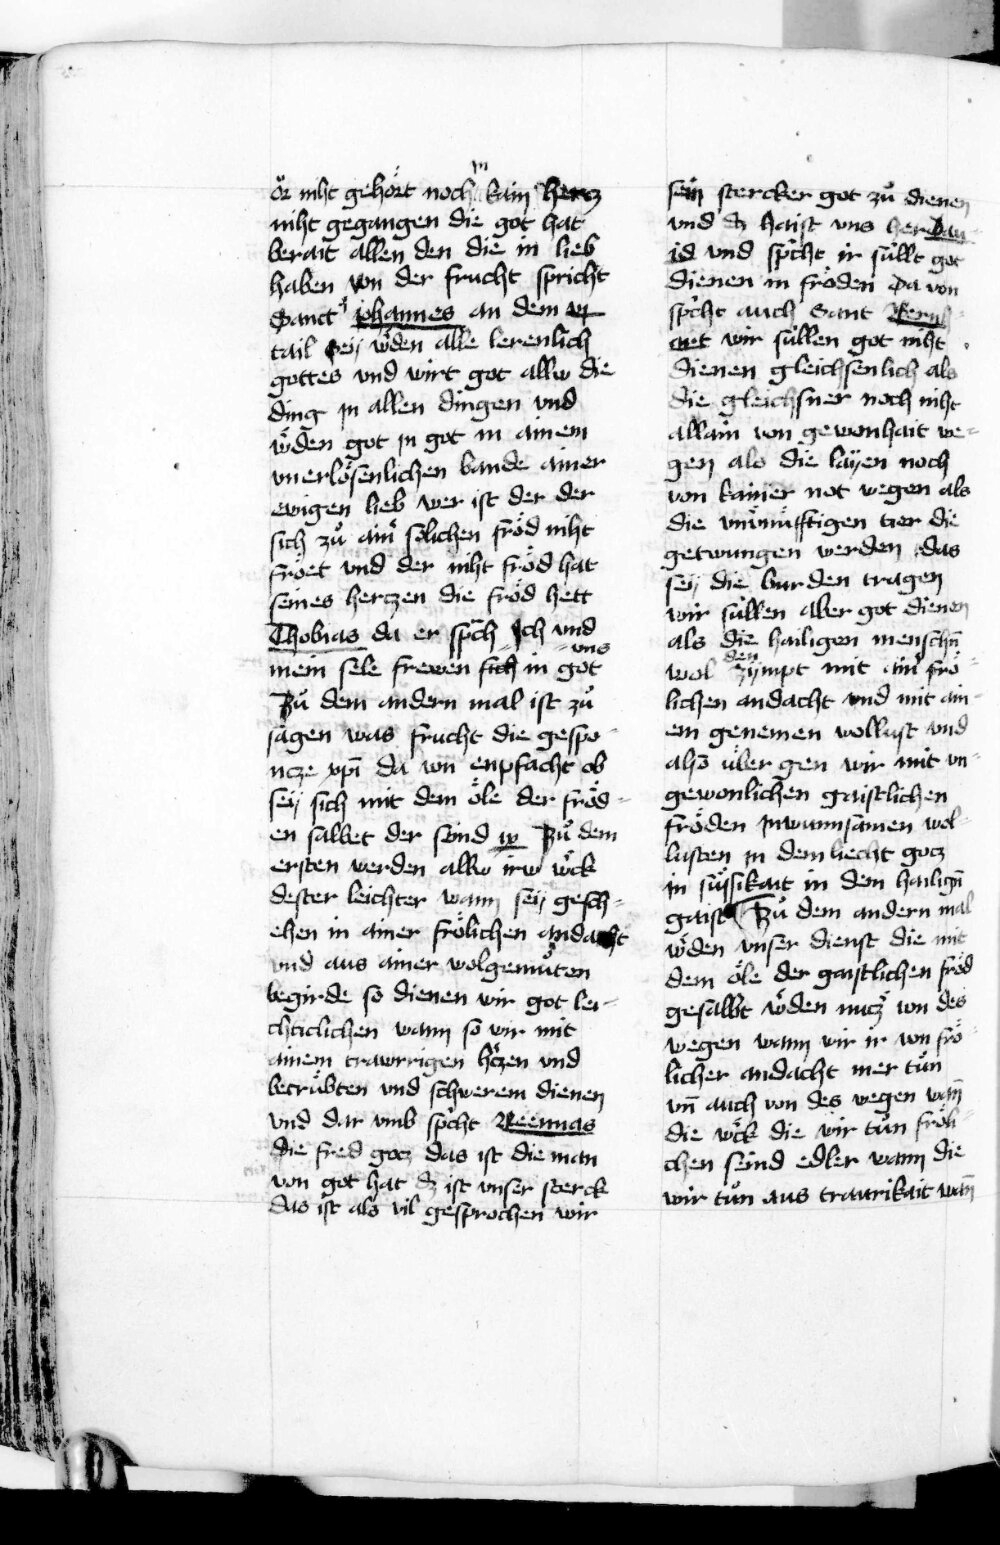 ör niht gehört noch in kain hertz
niht gegangen die got hat
berait allen den die in lieb
haben von der frucht spricht
Sanct johannes an dem vj
tail Seÿ wͤden alle lerenlich
gottes vnd wirt got allw die
ding jn allen dingen vnd
wͤden got jn got in ainem
vnerlösenlichen bande ainer
ewigen lieb wer ist der der
sich zů aim̄ sölichen fröd niht
fröet vnd der niht fröd hat
seines hertzen die fröd hett
Thobias da er spͣch Ich vnd
mein sele frewen sich vns in got
Zů dem andern mal ist zů
sagen was frucht die gespo-
ncze xpī da von enpfacht ob
seÿ sich mit dem öle der fröd-
en salbet der seind iv Zů dem
ersten werden allw irw wͤck
dester leichter wann seÿ gesch-
ehen in ainer frölichen andacht
vnd aus ainer wolgemůten
begirde so dienen wir got lei-
chticlichen wann so wir mit
ainem trawrrigen hͤczen vnd
betrübten vnd schwerem dienen
vnd dar vmb spͥcht Neemias
die fred gocz das ist die man
von got hat dz ist vnser sterck
das ist als vil gesprochen wir
sein stercker got zů dienen
vnd dz haist vns her Dau-
id vnd spͥcht ir süllt got
dienen in fröden Da von
spͥcht auch Sant Bern-
wir süllen got niht
dienen gleichsenlich als
die gleichsner noch niht
allain von gewonhait we-
gen als die laÿen noch
von kainer not wegen als
die vnuͤnüfftigen tier die
getwungen werden das
seÿ die burden tragen
wir süllen aber got dienen
als die hailigen menschn̄
wol den zÿmpt mit ain̄ frö-
lichen andacht vnd mit ain-
em genemen wollust vnd
also über gen wir mit vn-
gewonlichen gaistlichen
fröden jnwunnsamen wol-
lusten in dem liecht gocz
in süssikait in dem hailign̄
gaist Zů dem andern mal
wͤden vnser dienst die mit
dem öle der gaistlichen fröd
gesalbt wͤden nucz von des
wegen wann wir ir von frö-
licher andacht mer tůn
vn̄ auch von des wegen wan̄
die wͤck die wir tůn fröli-
chen seind edler wann die
wir tůn aus traurikait wan̄